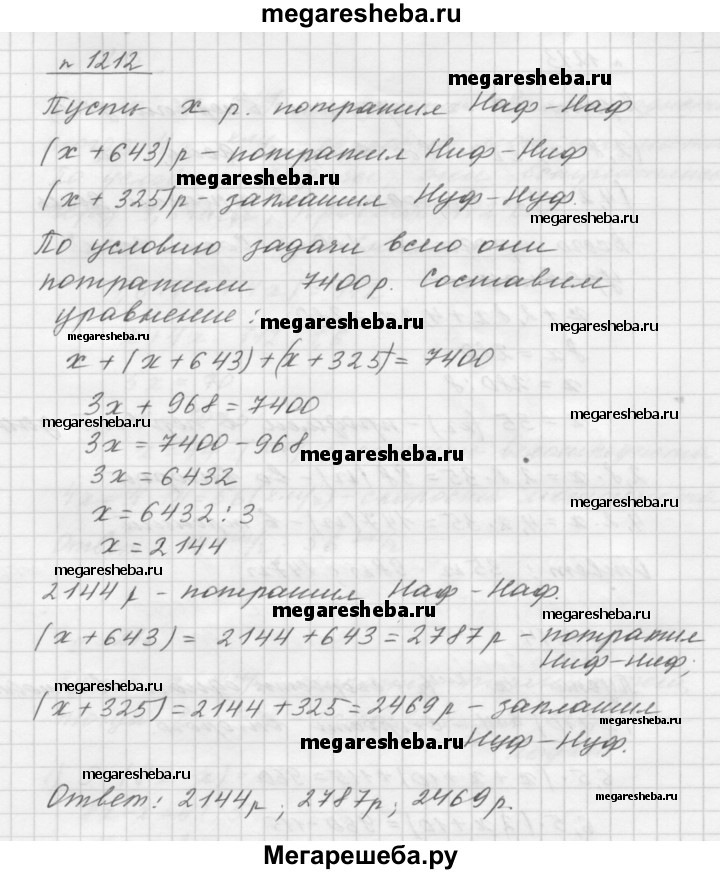 megaresheba.ru
n 1212
megaresheba.ru
Пусть x р. потратил Наф-Наф
(x + 643) р - потратил Ниф-Ниф
megaresheba.ru
(x + 325) р - заплатил Нуф-Нуф.
megaresheba.ru
По условию задачи всего они
потратили 7400 р. Составим
уравнение:
megaresheba.ru
megaresheba.ru
megaresheba.ru
x + (x + 643) + (x + 325) = 7400
3x + 968 = 7400
megaresheba.ru
megaresheba.ru
3x = 7400 - 968
megaresheba.ru
3x = 6432
x = 6432 : 3
x = 2144
megaresheba.ru
megaresheba.ru
2144 р - потратил Наф-Наф.
megaresheba.ru
megaresheba.ru
(x + 643) = 2144 + 643 = 2787 р - потратил
Ниф-Ниф;
megaresheba.ru
(x + 325) = 2144 + 325 = 2469 р - заплатил
megaresheba.ru
Нуф-Нуф.
megaresheba.ru
megaresheba.ru
Ответ: 2144 р; 2787 р; 2469 р.
megaresheba.ru
Мегарешеба.ру